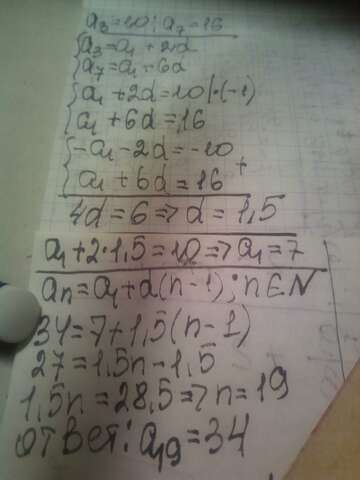 a₃=10; a₇=16
a₃=a₁+2d
a₇=a₁+6d
a₁+2d=10|·(-1)
a₁+6d=16
-a₁-2d=-10
a₁+6d=16 +
4d=6=>d=1,5
a₁+2·1,5=10=>a₁=7
aₙ=a₁+d(n-1); n∈N
34=7+1,5(n-1)
27=1,5n-1,5
1,5n=28,5=>n=19
ответ: a₁₉=34